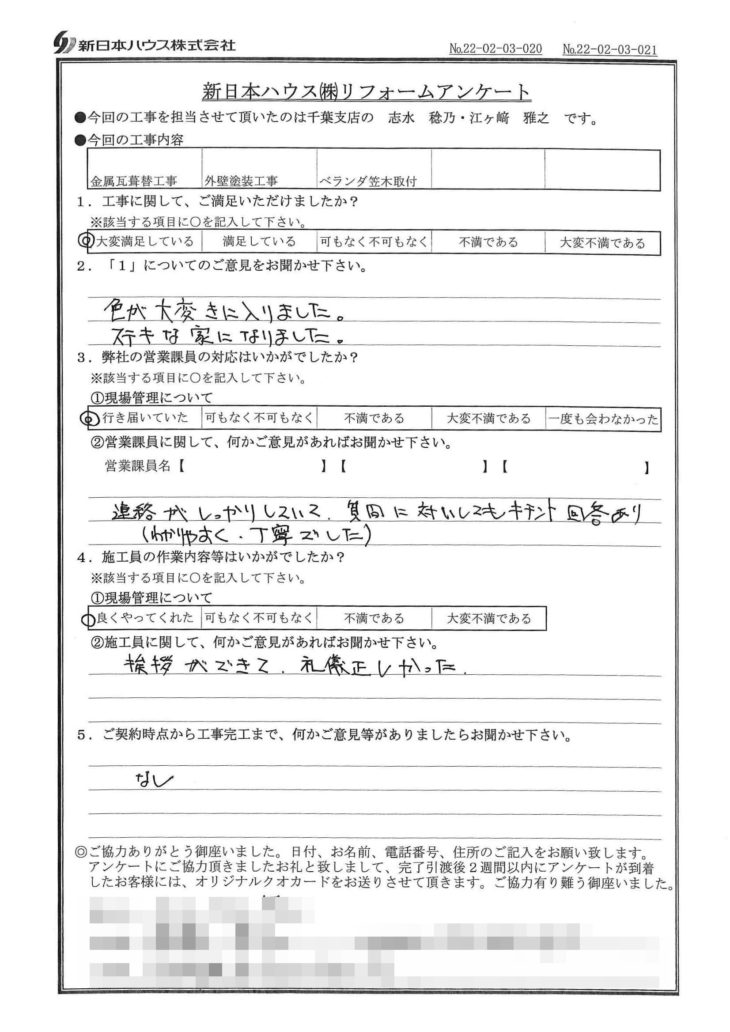 新日本ハウス株式会社
№22-02-03-020 №22-02-03-021
新日本ハウス㈱リフォームアンケート
●今回の工事を担当させて頂いたのは千葉支店の 志水 稔乃・江ヶ﨑 雅之 です。
●今回の工事内容
金属瓦葺替工事 外壁塗装工事 ベランダ笠木取付
1．工事に関して、ご満足いただけましたか？
※該当する項目に○を記入して下さい。
◎大変満足している 満足している 可もなく不可もなく 不満である 大変不満である
2．「1」についてのご意見をお聞かせ下さい。
色が大変きに入りました。
ステキな家になりました。
3．弊社の営業課員の対応はいかがでしたか？
※該当する項目に○を記入して下さい。
①現場管理について
◎行き届いていた 可もなく不可もなく 不満である 大変不満である 一度も会わなかった
②営業課員に関して、何かご意見があればお聞かせ下さい。
営業課員名【 】【 】【 】
連絡がしっかりしていて、質問に対いしてもキチント回答あり
（わかりやすく、丁寧でした）
4．施工員の作業内容等はいかがでしたか？
※該当する項目に○を記入して下さい。
①現場管理について
○良くやってくれた 可もなく不可もなく 不満である 大変不満である
②施工員に関して、何かご意見があればお聞かせ下さい。
挨拶ができて、礼儀正しかった。
5．ご契約時点から工事完工まで、何かご意見等がありましたらお聞かせ下さい。
なし
◎ご協力ありがとう御座いました。日付、お名前、電話番号、住所のご記入をお願い致します。
アンケートにご協力頂きましたお礼と致しまして、完了引渡後２週間以内にアンケートが到着
したお客様には、オリジナルクオカードをお送りさせて頂きます。ご協力有り難う御座いました。